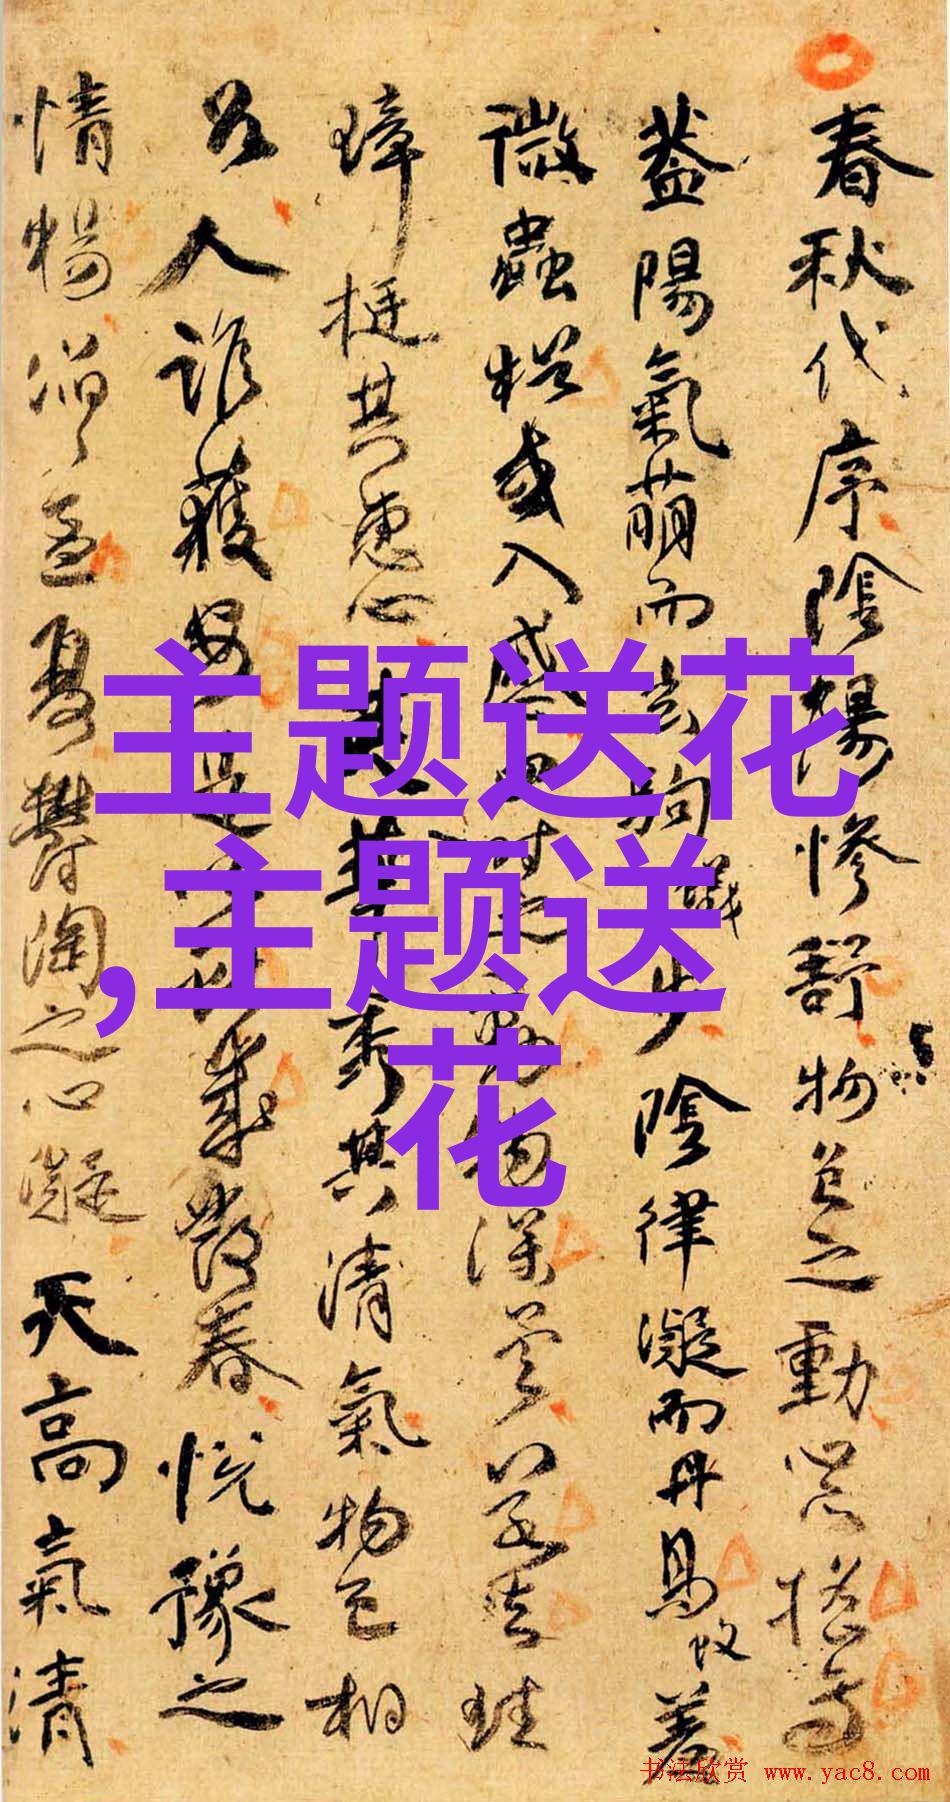 春秋代序陰陽慘舒物色之動心亦搖焉
蓋陽氣萌而玄駒蟻步陰律凝而丹鳥蚊羞
微蟲猶或入感四時之動物深矣若夫珪
璋挺其惠心英華秀其清氣物色相
召人誰獲安是以獻歲發春悅豫之
情暢滔〻孟夏鬱陶之心凝天高氣清
主题送花
,主题送
花
书法欣赏 www.yac8.com